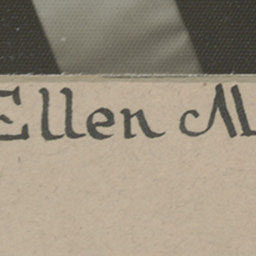 Ellen M